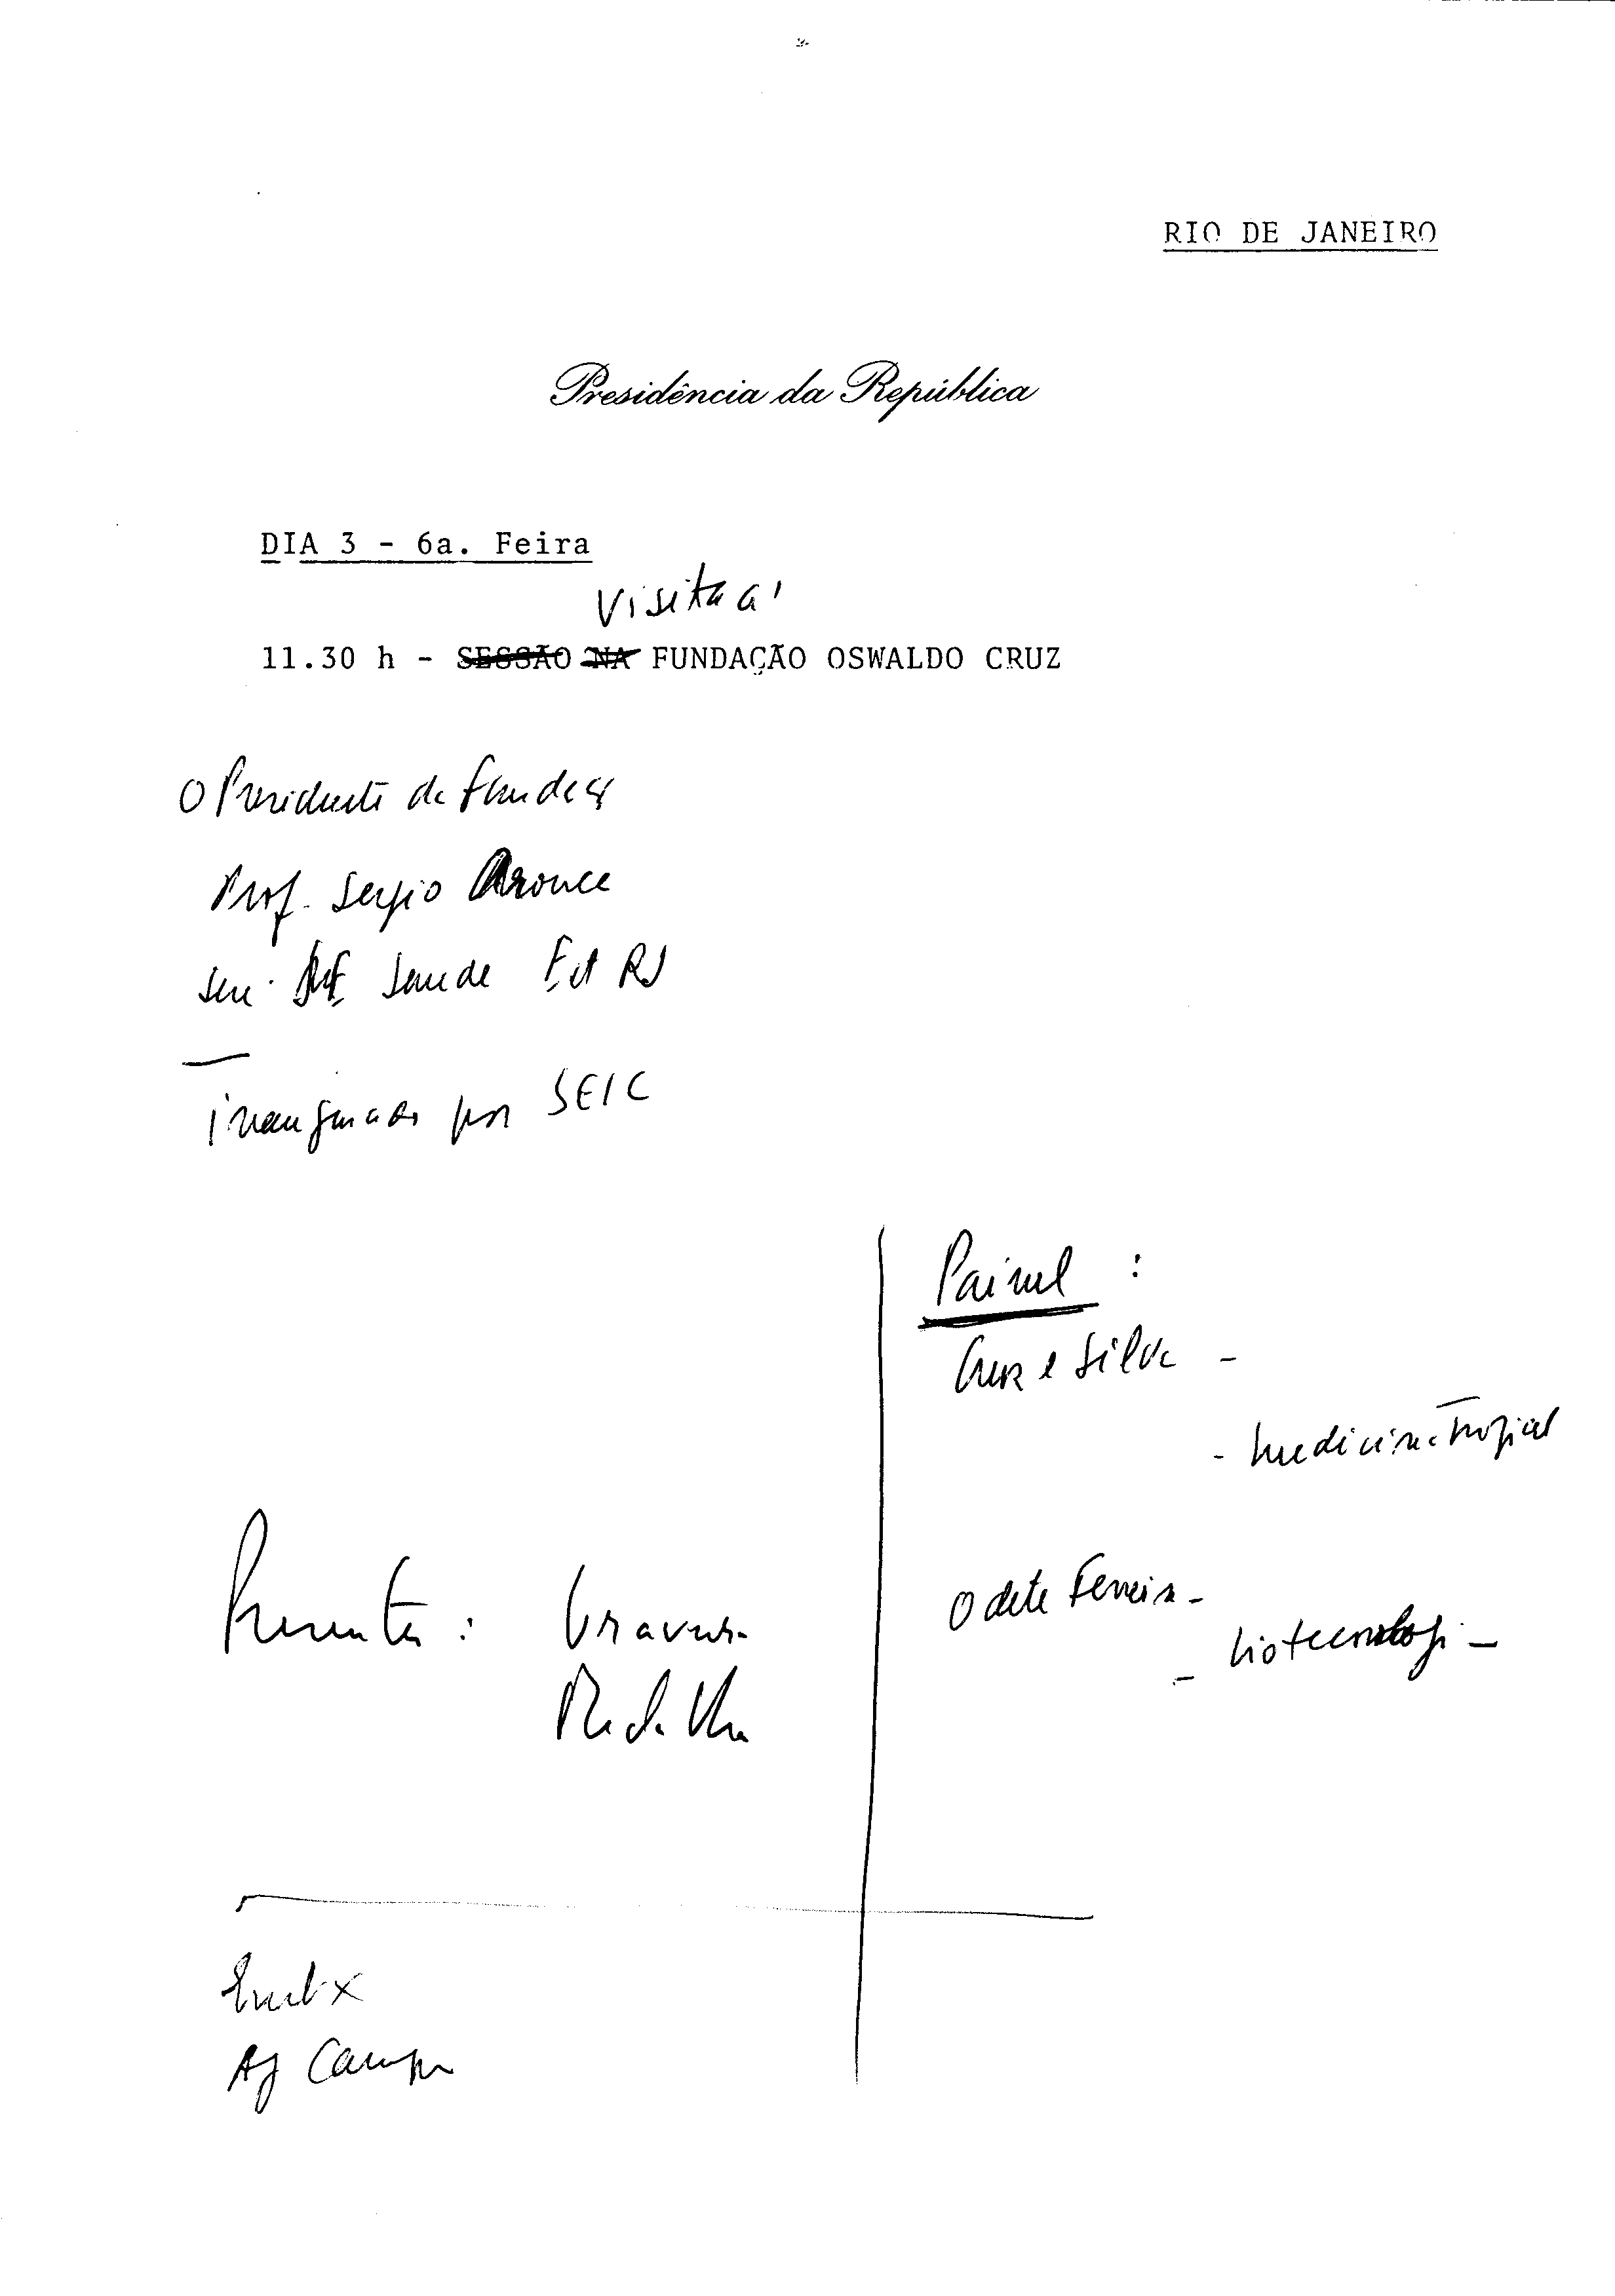 RIO DE JANEIRO
Presidência da República
DIA 3 - 6a. Feira
Visita à
11.30 h - SESSÃO NA FUNDAÇÃO OSWALDO CRUZ
O Presidente da
Prof. Sergio Arouca
Saude Est RJ
por SEIC
Painel :
Cruz e Silva -
- Medicina Tropical
Odete Ferreira -
- biotecnologi -
: Gravura
Medalha
Campos